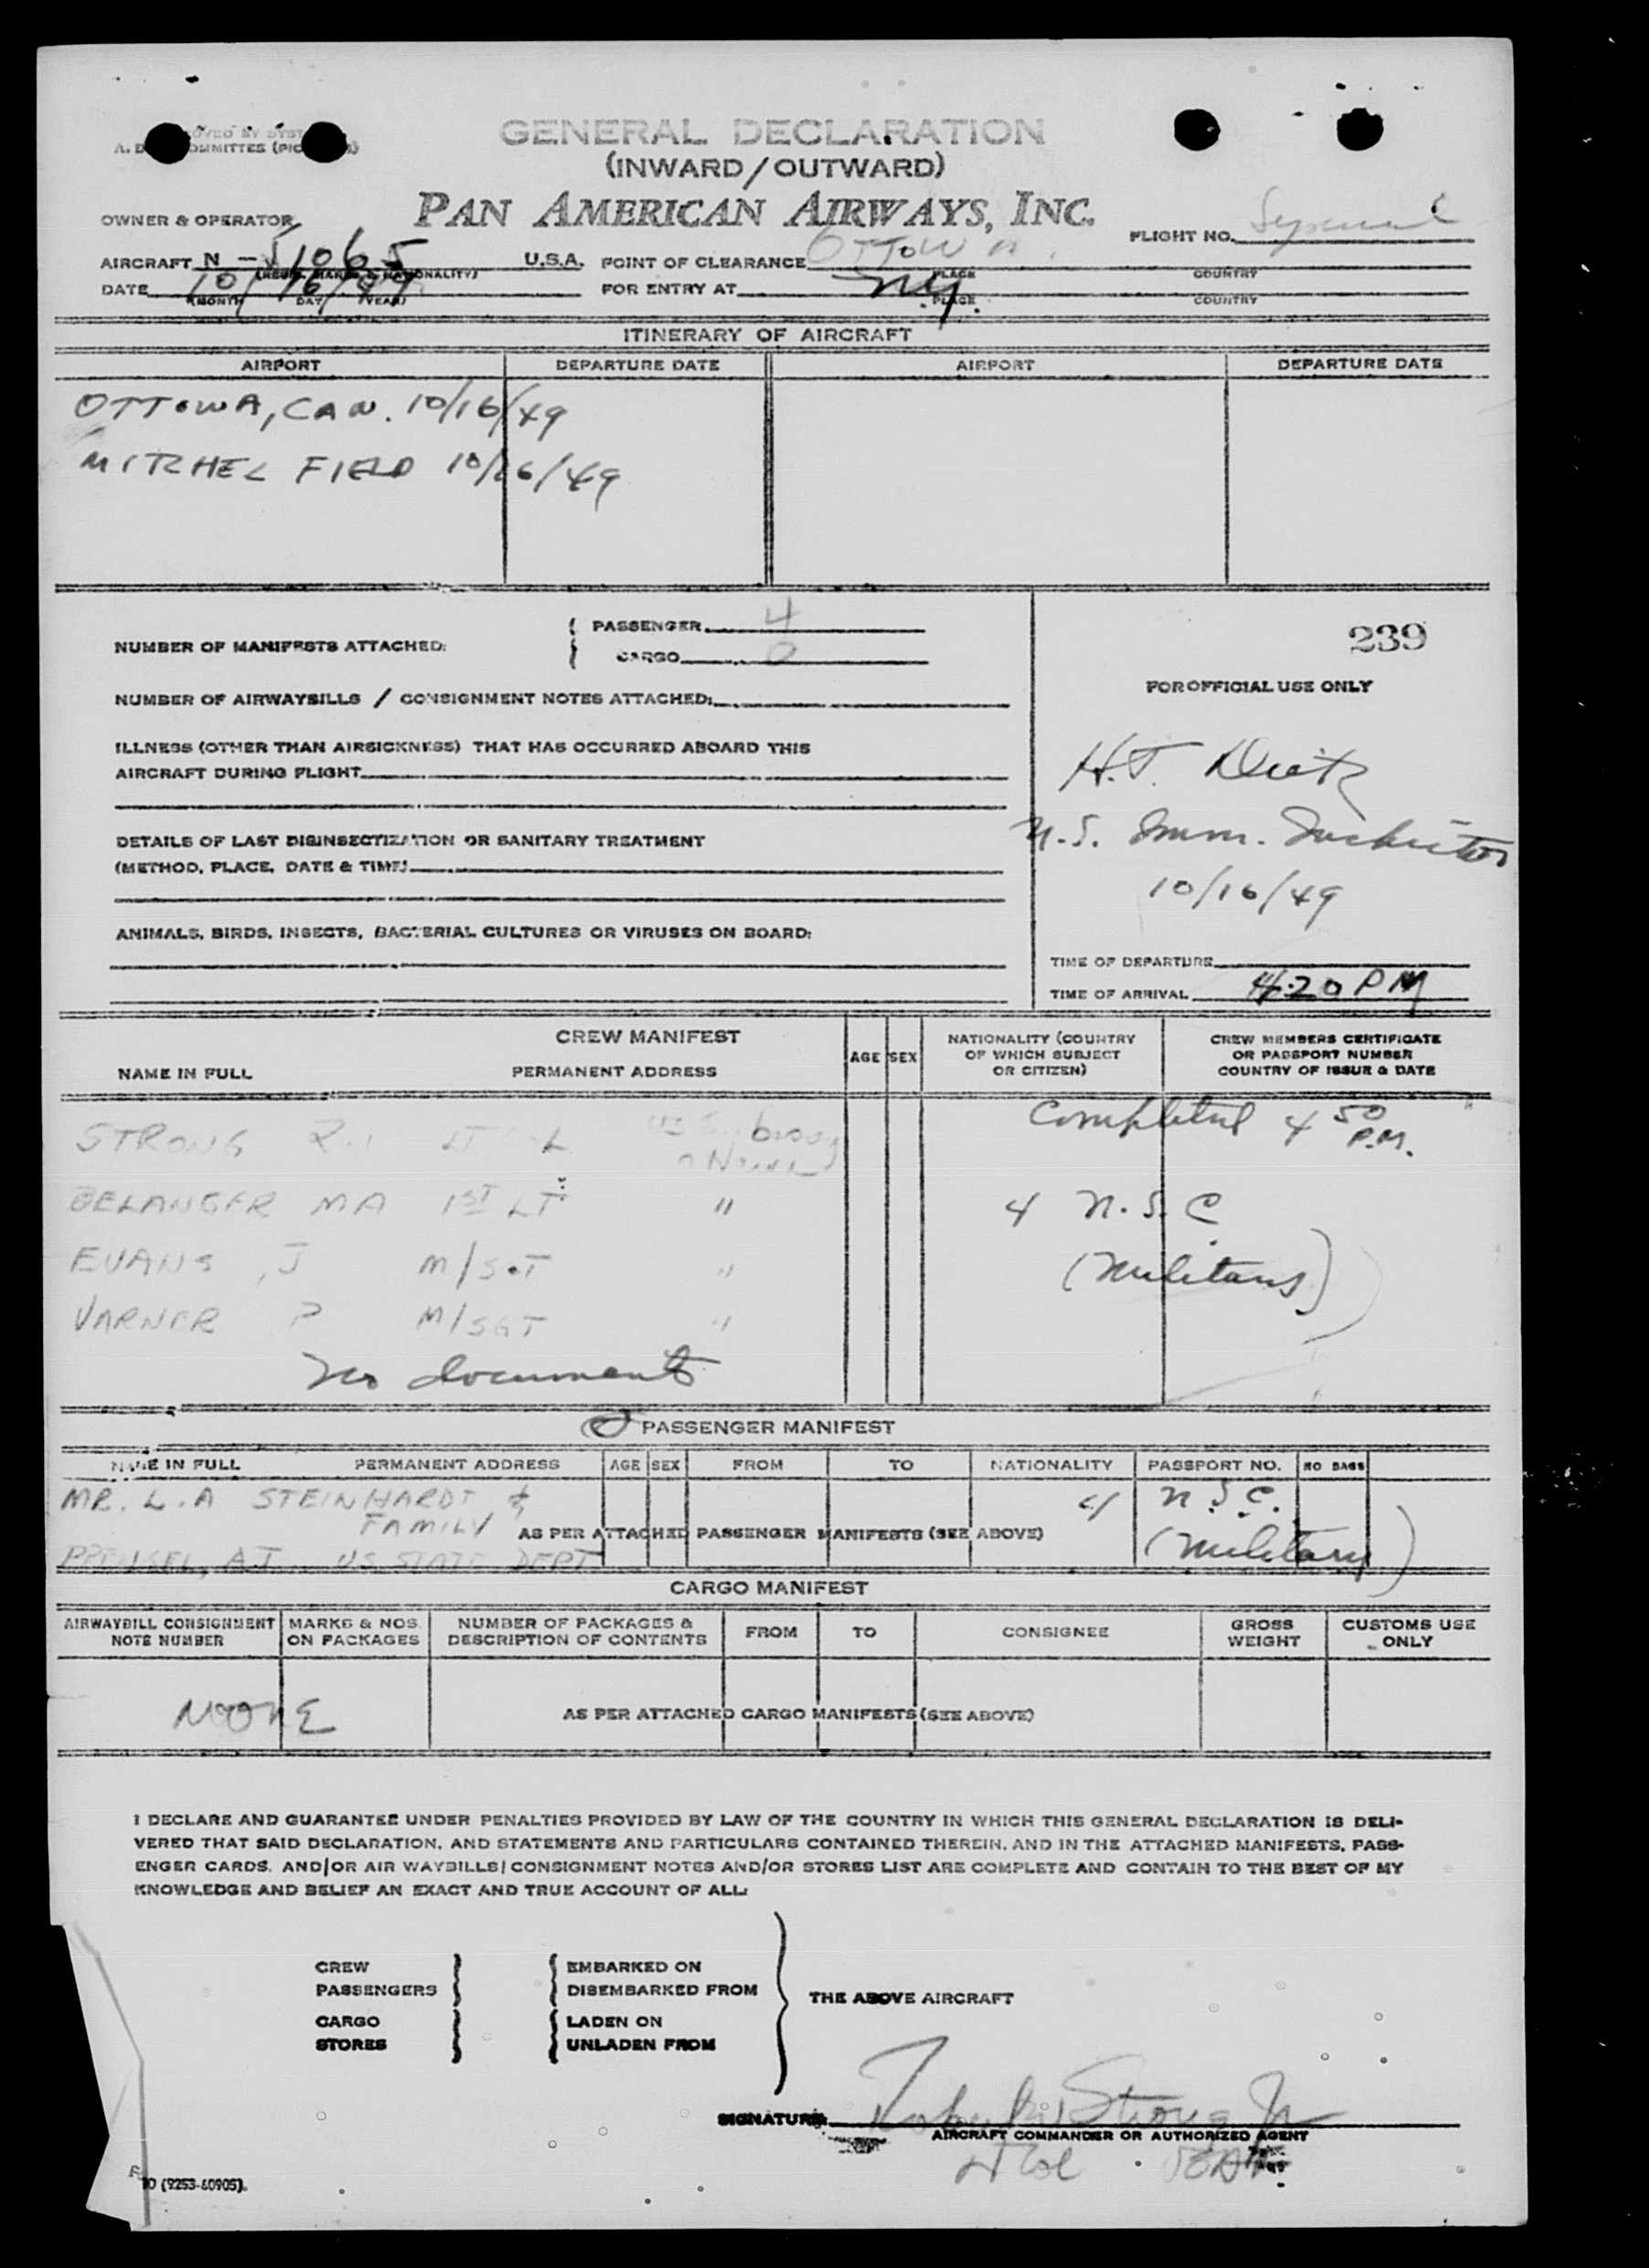 GENERAL DECLARATION
(INWARD/OUTWARD)
PAN AMERICAN AIRWAYS, INC.
OWNER & OPERATOR
FLIGHT NO.
AIRCRAFT N - 51065 U.S.A. POINT OF CLEARANCE OTTOWA
(REGIS. MARKS & NATIONALITY) PLACE COUNTRY
DATE 10/16/49 FOR ENTRY AT N.Y.
(MONTH DAY YEAR) PLACE COUNTRY
ITINERARY OF AIRCRAFT
AIRPORT DEPARTURE DATE AIRPORT DEPARTURE DATE
OTTOWA, CAN. 10/16/49
MITCHEL FIELD 10/16/49
NUMBER OF MANIFESTS ATTACHED: PASSENGER 4
CARGO 0
239
FOR OFFICIAL USE ONLY
NUMBER OF AIRWAYBILLS / CONSIGNMENT NOTES ATTACHED:
ILLNESS (OTHER THAN AIRSICKNESS) THAT HAS OCCURRED ABOARD THIS
AIRCRAFT DURING FLIGHT
H.J. Dietz
U.S. Imm. Inspector
10/16/49
DETAILS OF LAST DISINSECTIZATION OR SANITARY TREATMENT
(METHOD, PLACE, DATE & TIME)
ANIMALS, BIRDS, INSECTS, BACTERIAL CULTURES OR VIRUSES ON BOARD:
TIME OF DEPARTURE
TIME OF ARRIVAL 4:20 PM
CREW MANIFEST
NAME IN FULL PERMANENT ADDRESS AGE SEX NATIONALITY (COUNTRY OF WHICH SUBJECT OR CITIZEN) CREW MEMBERS CERTIFICATE OR PASSPORT NUMBER COUNTRY OF ISSUE & DATE
Completed 4 50 P.M.
STRONG LT
BELANGER MA 1ST LT "
4 U.S.C
EVANS, J M/SGT "
(Military)
VARNER P M/SGT "
No documents
PASSENGER MANIFEST
NAME IN FULL PERMANENT ADDRESS AGE SEX FROM TO NATIONALITY PASSPORT NO. NO BAGS
MR. L.A STEINHARDT &
FAMILY
4 U.S.C.
AS PER ATTACHED PASSENGER MANIFESTS (SEE ABOVE)
(Military)
A.J. U.S STATE DEPT
CARGO MANIFEST
AIRWAYBILL CONSIGNMENT NOTE NUMBER MARKS & NOS. ON PACKAGES NUMBER OF PACKAGES & DESCRIPTION OF CONTENTS FROM TO CONSIGNEE GROSS WEIGHT CUSTOMS USE ONLY
NONE
AS PER ATTACHED CARGO MANIFESTS (SEE ABOVE)
I DECLARE AND GUARANTEE UNDER PENALTIES PROVIDED BY LAW OF THE COUNTRY IN WHICH THIS GENERAL DECLARATION IS DELI-
VERED THAT SAID DECLARATION, AND STATEMENTS AND PARTICULARS CONTAINED THEREIN, AND IN THE ATTACHED MANIFESTS, PASS-
ENGER CARDS, AND/OR AIR WAYBILLS/CONSIGNMENT NOTES AND/OR STORES LIST ARE COMPLETE AND CONTAIN TO THE BEST OF MY
KNOWLEDGE AND BELIEF AN EXACT AND TRUE ACCOUNT OF ALL:
CREW EMBARKED ON
PASSENGERS DISEMBARKED FROM
THE ABOVE AIRCRAFT
CARGO LADEN ON
STORES UNLADEN FROM
SIGNATURE Strong Jr
AIRCRAFT COMMANDER OR AUTHORIZED AGENT
(9253-60905)